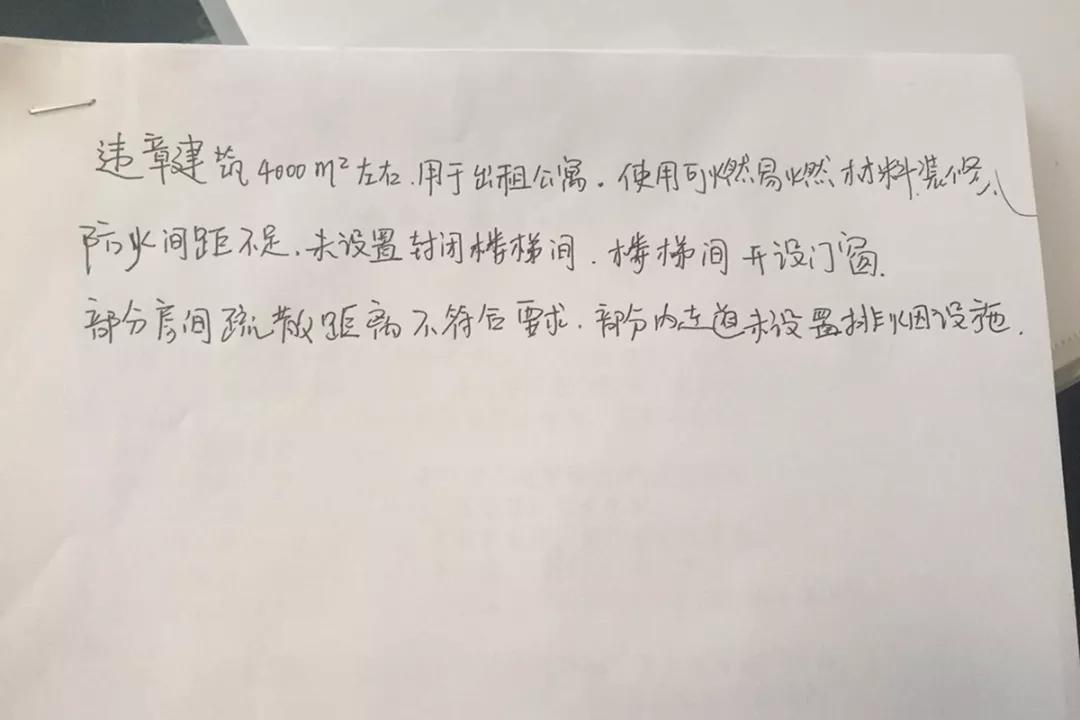 违章建筑4000m²左右.用于出租公寓.使用可燃易燃材料装修、
防火间距不足、未设置封闭楼梯间.楼梯间开设门窗.
部分房间疏散距离不符合要求.部分内走道未设置排烟设施.